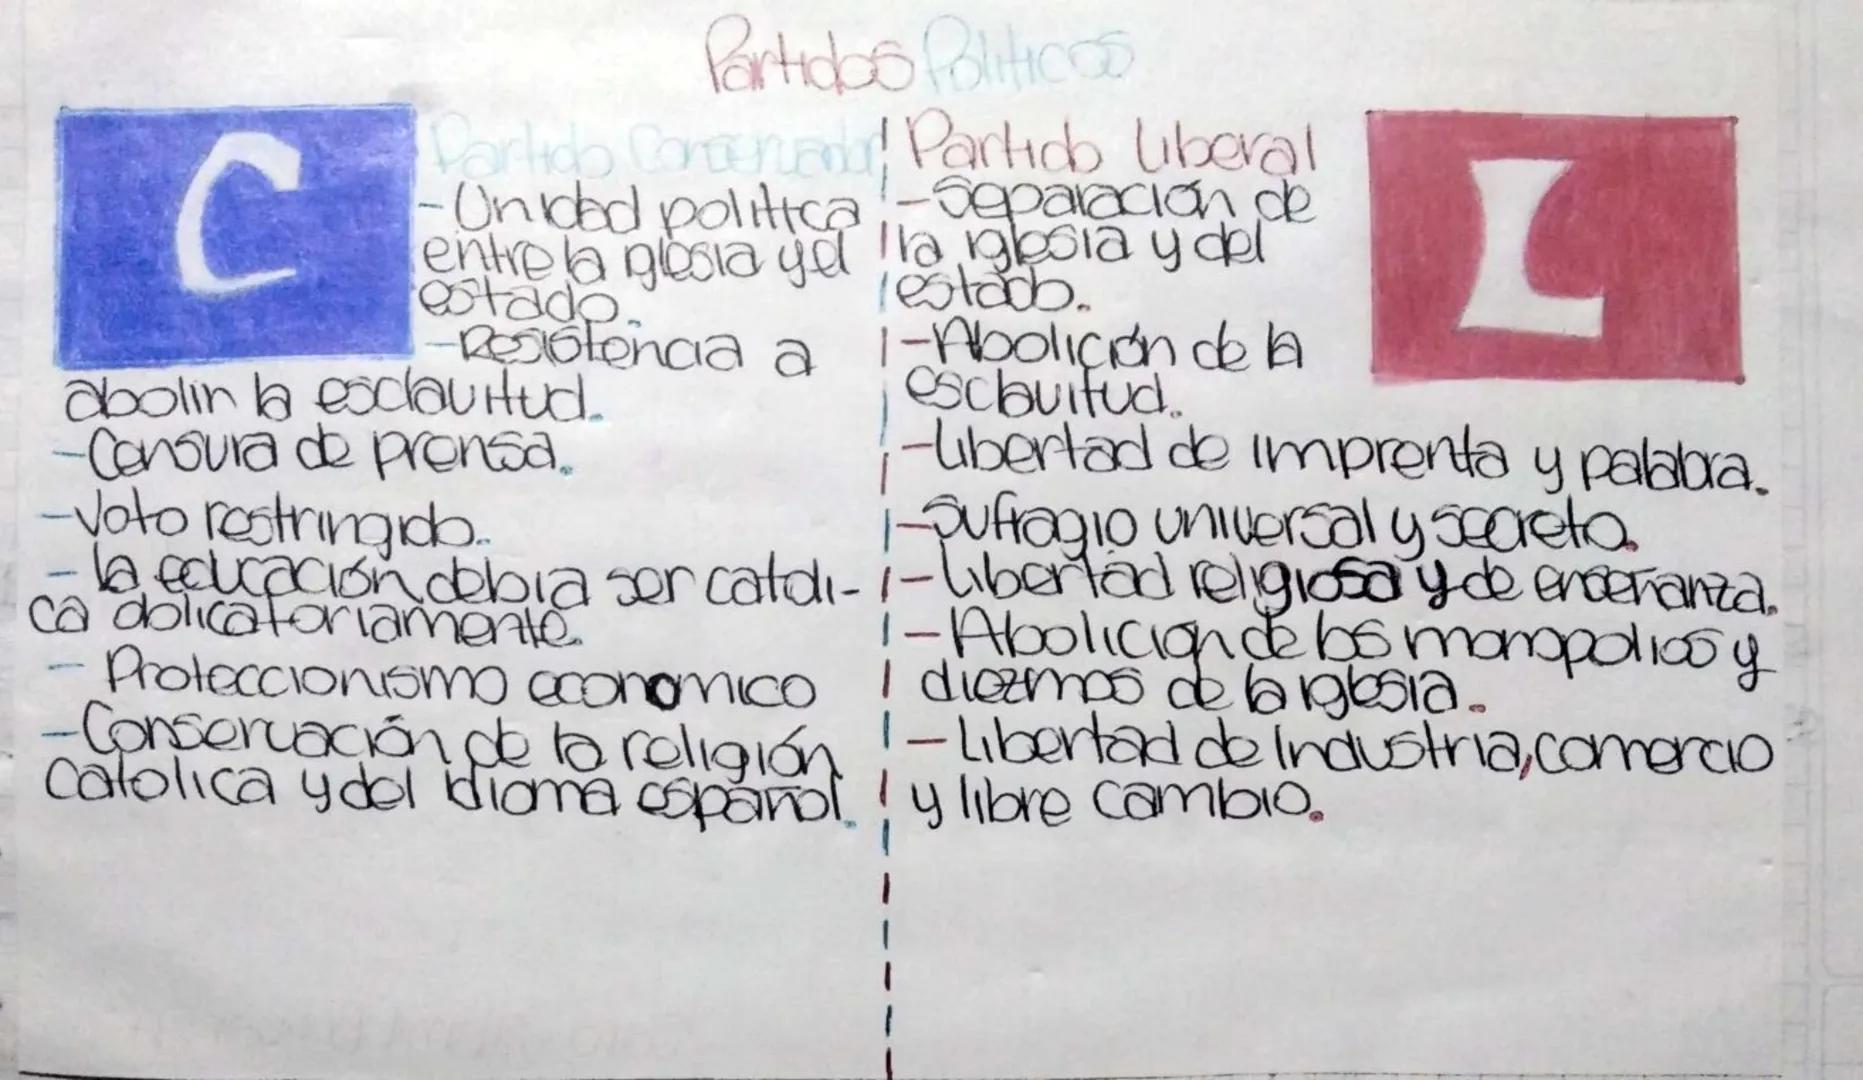 Partidos Politicos
C
Partido Conservador
-Unidad politica
entre la iglesia y el
estado.
-Resistencia a
abolir la esclavitud.
-Censura de prensa.
-Voto restringido.
-la educación debia ser catoli-
ca oblicatoriamente.
- Proteccionismo economico
-Conservación de la religión
Catolica y del idioma español.
Partido liberal
-Separación de
la iglesia y del
estado.
-Abolición de la
esclavitud.
-libertad de imprenta y palabra.
-Sufragio universal y secreto.
-libertad religiosa y de enseñanza.
-Abolición de los monopolios y
diezmos de la iglesia.
-Libertad de Industria, comercio
y libre cambio.
L